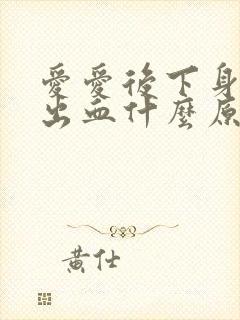 愛愛後下身
出血什麼原
黃仕